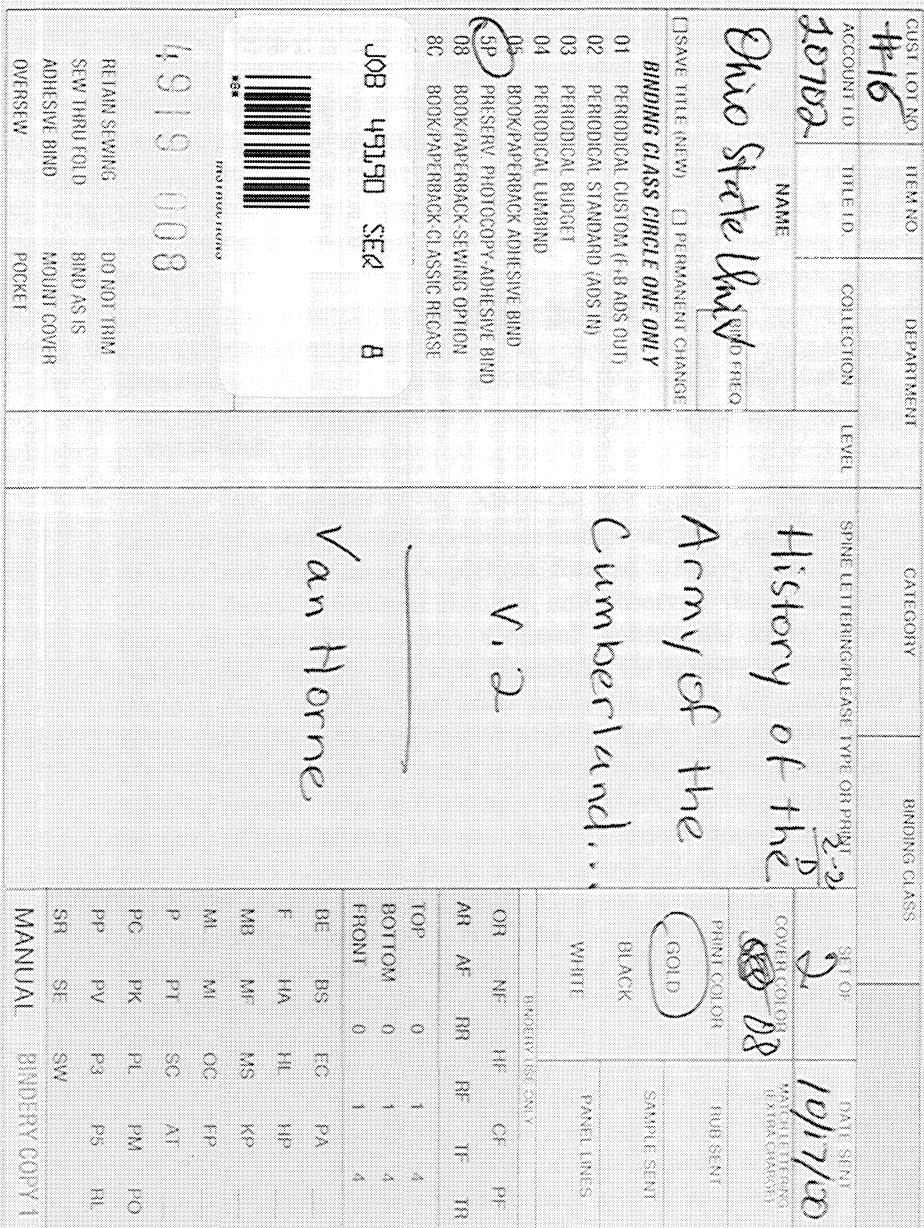 CUST LOT NO ITEM NO DEPARTMENT CATEGORY BINDING CLASS
#16
ACCOUNT I.D. TITLE I.D. COLLECTION LEVEL
20702
NAME
Ohio State Univ
BIND FREQ
SAVE TITLE (NEW) PERMANENT CHANGE
BINDING CLASS CIRCLE ONE ONLY
01 PERIODICAL CUSTOM (F+B ADS OUT)
02 PERIODICAL STANDARD (ADS IN)
03 PERIODICAL BUDGET
04 PERIODICAL LUMBIND
05 BOOK/PAPERBACK ADHESIVE BIND
5P PRISERV PHOTOCOPY-ADHESIVE BIND
08 BOOK/PAPERBACK-SEWING OPTION
8C BOOK/PAPERBACK-CLASSIC RECASE
JOB 49190 SEQ 8
*8*
INSTRUCTIONS
4919 008
RETAIN SEWING DO NOT TRIM
SEW THRU FOLD BIND AS IS
ADHESIVE BIND MOUNT COVER
OVERSEW POCKET
SPINE LETTERING/PLEASE TYPE OR PRINT
2-2
D
History of the
Army of the
Cumberland...
v.2
Van Horne
SET OF DATE SENT
2 10/17/00
COVER COLOR MATCH LETTERING
(EXTRA CHARGE)
08
PRINT COLOR RUB SENT
GOLD SAMPLE SENT
BLACK
WHITE PANEL LINES
BINDERY USE ONLY
OR NF HF CF PF
AR AF RR RF TF TR
TOP 0 1 4
BOTTOM 0 1 4
FRONT 0 1 4
BE BS EC PA
F HA HL HP
MB MF MS KP
ML MI OC FP
P PT SC AT
PC PK PL PM PO
PP PV P3 P5 RL
SR SE SW
MANUAL BINDERY COPY 1